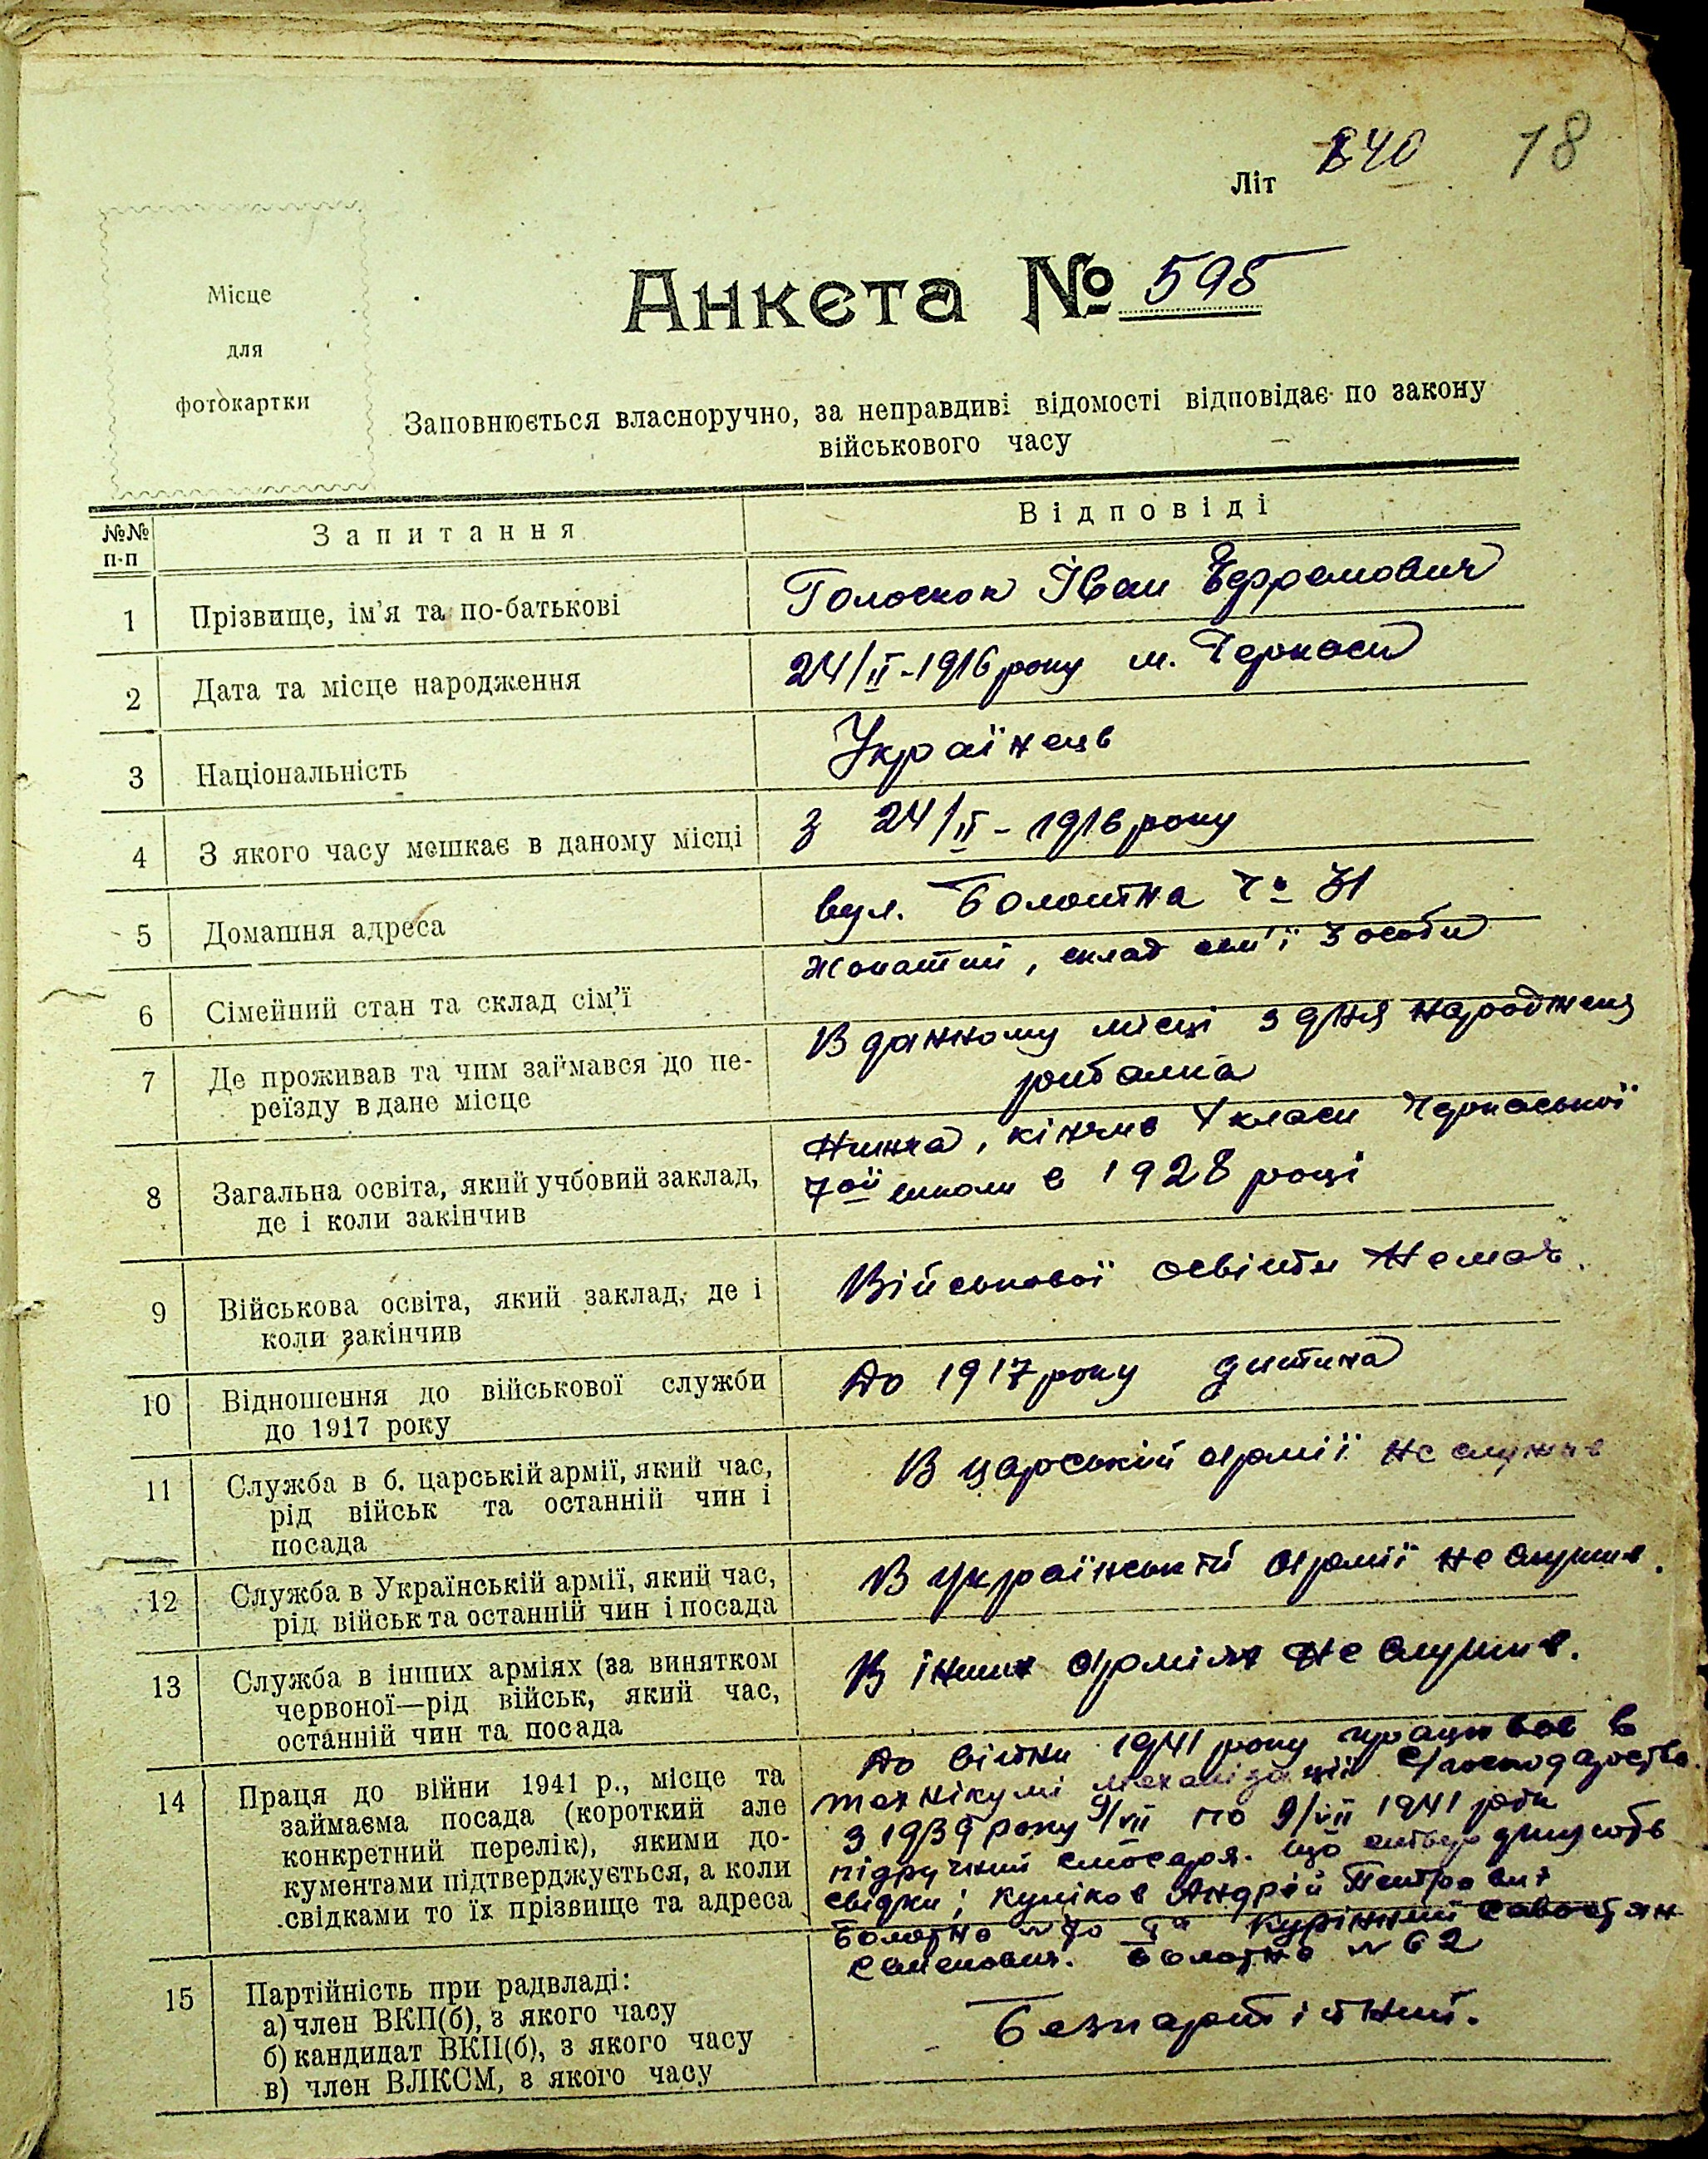 640 18
Літ
Місце
для
фотокартки
Анкета № 598
Заповнюється власноручно, за неправдиві відомості відповідає по закону
військового часу
№№
п-п
Запитання
Відповіді
1 Прізвище, ім'я та по-батькові
Голоскок Іван Єфремович
2 Дата та місце народження
24/II-1916 року м. Черкаси
3 Національність
Українець
4 З якого часу мешкає в даному місці
З 24/II-1916 року
5 Домашня адреса
вул. Болотна
6 Сімейний стан та склад сім'ї
Жонатий, склад сем'ї 3 особи
7 Де проживав та чим займався до пе-
реїзду в дане місце
В данному місці з дня народженя
рибалка
8 Загальна освіта, який учбовий заклад,
де і коли закінчив
Нижча, кінчив класи Черкаської
7ой школи в 1928 році
9 Військова освіта, який заклад, де і
коли закінчив
Військової освіти Немає.
10 Відношення до військової служби
до 1917 року
До 1917 року дитина
11 Служба в б. царській армії, який час,
рід військ та останній чин і
посада
В царській армії не служив
12 Служба в Українській армії, який час,
рід військ та останній чин і посада
В українській армії не служив.
13 Служба в інших арміях (за винятком
червоної—рід військ, який час,
останній чин та посада
В інших арміях не служив.
14 Праця до війни 1941 р., місце та
займаєма посада (короткий але
конкретний перелік), якими до-
кументами підтверджується, а коли
свідками то їх прізвище та адреса
До війни 1941 року працював в
технікумі механізації с/господарства.
З 1939 року 9/VII по 9/VII 1941 роки
підручний слюсаря. що
свідки; Куліков Андрій Петрович
Болотна № 70 Курінний Савостян
Семенович. Болотна № 62
15 Партійність при радвладі:
а) член ВКП(б), з якого часу
б) кандидат ВКП(б), з якого часу
в) член ВЛКСМ, з якого часу
Безпартійний.